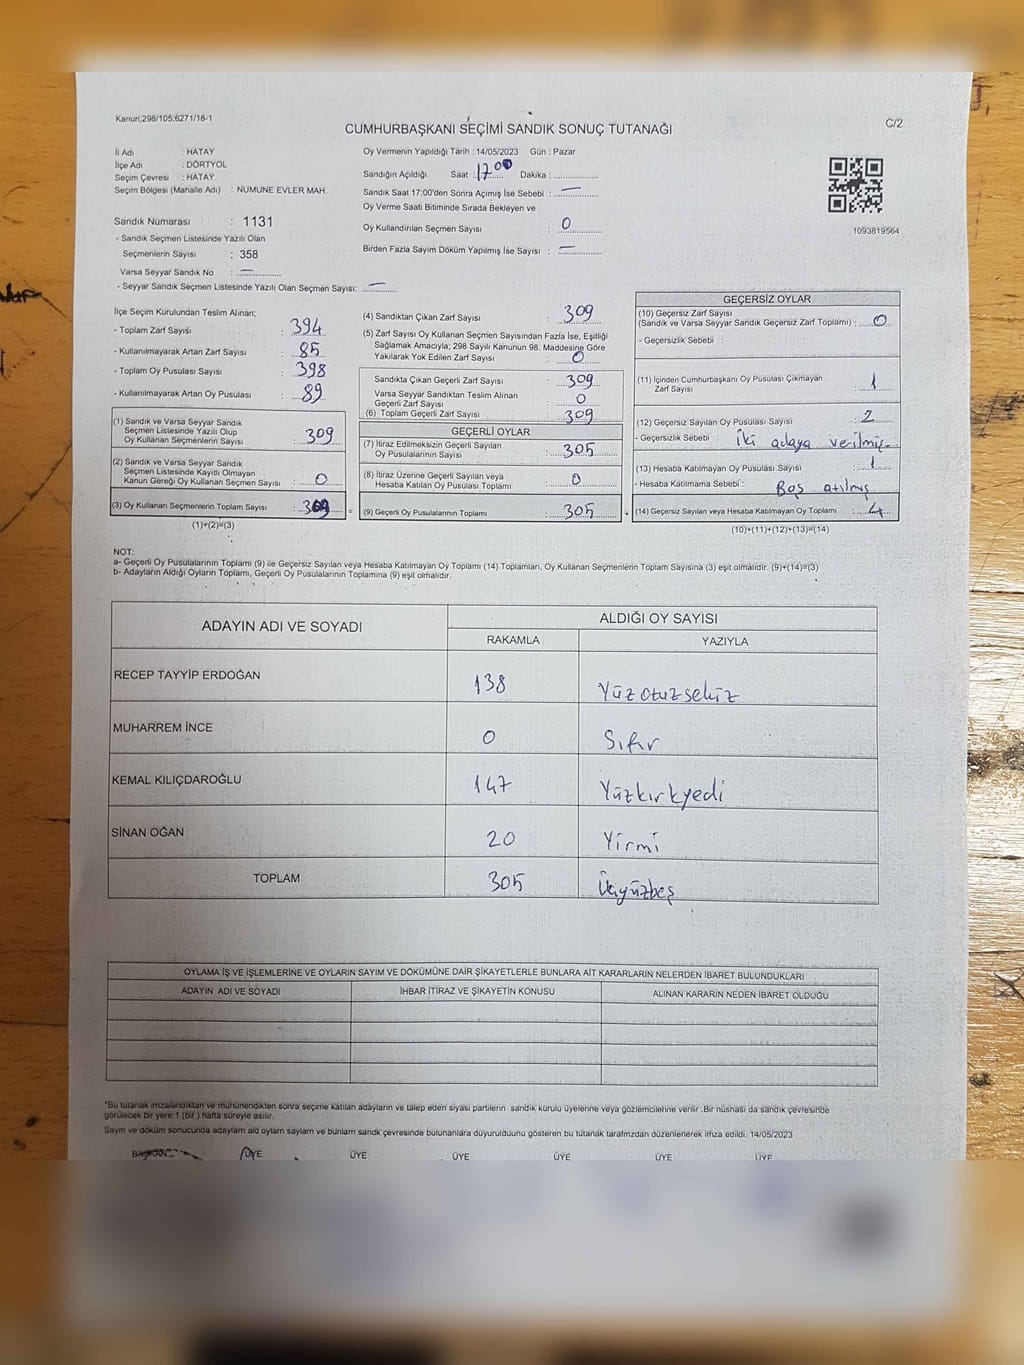 Kanun;298/105;6271/18-1
C/2
CUMHURBAŞKANI SEÇİMİ SANDIK SONUÇ TUTANAĞI
İl Adı : HATAY
İlçe Adı : DÖRTYOL
Seçim Çevresi : HATAY
Seçim Bölgesi (Mahalle Adı) : NUMUNE EVLER MAH.
Sandık Numarası : 1131
- Sandık Seçmen Listesinde Yazılı Olan
Seçmenlerin Sayısı : 358
Varsa Seyyar Sandık No : —
- Seyyar Sandık Seçmen Listesinde Yazılı Olan Seçmen Sayısı: —
Oy Vermenin Yapıldığı Tarih : 14/05/2023 Gün : Pazar
Sandığın Açıldığı Saat : 17 00 Dakika : ..............
Sandık Saat 17:00'den Sonra Açımış İse Sebebi : —
Oy Verme Saati Bitiminde Sırada Bekleyen ve
Oy Kullandırılan Seçmen Sayısı : 0
Birden Fazla Sayım Döküm Yapılmış İse Sayısı : —
1093819564
İlçe Seçim Kurulundan Teslim Alınan;
- Toplam Zarf Sayısı : 394
- Kullanılmayarak Artan Zarf Sayısı : 85
- Toplam Oy Pusulası Sayısı : 398
- Kullanılmayarak Artan Oy Pusulası : 89
(1) Sandık ve Varsa Seyyar Sandık
Seçmen Listesinde Yazılı Olup
Oy Kullanan Seçmenlerin Sayısı : 309
(2) Sandık ve Varsa Seyyar Sandık
Seçmen Listesinde Kayıtlı Olmayan
Kanun Gereği Oy Kullanan Seçmen Sayısı : 0
(3) Oy Kullanan Seçmenlerin Toplam Sayısı : 309
(1)+(2)=(3)
(4) Sandıktan Çıkan Zarf Sayısı : 309
(5) Zarf Sayısı Oy Kullanan Seçmen Sayısından Fazla İse, Eşitliği
Sağlamak Amacıyla; 298 Sayılı Kanunun 98. Maddesine Göre
Yakılarak Yok Edilen Zarf Sayısı : 0
Sandıkta Çıkan Geçerli Zarf Sayısı : 309
Varsa Seyyar Sandıktan Teslim Alınan
Geçerli Zarf Sayısı : 0
(6) Toplam Geçerli Zarf Sayısı : 309
GEÇERLİ OYLAR
(7) İtiraz Edilmeksizin Geçerli Sayılan
Oy Pusulalarının Sayısı : 305
(8) İtiraz Üzerine Geçerli Sayılan veya
Hesaba Katılan Oy Pusulası Toplamı : 0
(9) Geçerli Oy Pusulalarının Toplamı : 305
GEÇERSİZ OYLAR
(10) Geçersiz Zarf Sayısı
(Sandık ve Varsa Seyyar Sandık Geçersiz Zarf Toplamı) : 0
- Geçersizlik Sebebi :
(11) İçinden Cumhurbaşkanı Oy Pusulası Çıkmayan
Zarf Sayısı : 1
(12) Geçersiz Sayılan Oy Pusulası Sayısı : 2
- Geçersizlik Sebebi : İki adaya verilmiş
(13) Hesaba Katılmayan Oy Pusulası Sayısı : 1
- Hesaba Katılmama Sebebi : Boş atılmış
(14) Geçersiz Sayılan veya Hesaba Katılmayan Oy Toplamı : 4
(10)+(11)+(12)+(13)=(14)
NOT:
a- Geçerli Oy Pusulalarının Toplamı (9) ile Geçersiz Sayılan veya Hesaba Katılmayan Oy Toplamı (14) Toplamları, Oy Kullanan Seçmenlerin Toplam Sayısına (3) eşit olmalıdır. (9)+(14)=(3)
b- Adayların Aldığı Oyların Toplamı, Geçerli Oy Pusulalarının Toplamına (9) eşit olmalıdır.
ADAYIN ADI VE SOYADI
ALDIĞI OY SAYISI
RAKAMLA YAZIYLA
RECEP TAYYİP ERDOĞAN 138 Yüzotuzsekiz
MUHARREM İNCE 0 Sıfır
KEMAL KILIÇDAROĞLU 147 Yüzkırkyedi
SİNAN OĞAN 20 Yirmi
TOPLAM 305 Üçyüzbeş
OYLAMA İŞ VE İŞLEMLERİNE VE OYLARIN SAYIM VE DÖKÜMÜNE DAİR ŞİKAYETLERLE BUNLARA AİT KARARLARIN NELERDEN İBARET BULUNDUKLARI
ADAYIN ADI VE SOYADI İHBAR İTİRAZ VE ŞİKAYETİN KONUSU ALINAN KARARIN NEDEN İBARET OLDUĞU
*Bu tutanak imzalandıktan ve mühürlendikten sonra seçime katılan adayların ve talep eden siyasi partilerin sandık kurulu üyelerine veya gözlemcilerine verilir .Bir nüshası da sandık çevresinde
görülecek bir yere 1 (bir ) hafta süreyle asılır.
Sayım ve döküm sonucunda adayların ald oyların sayların ve bunların sandk çevresinde bulunanlara duyurulduunu gösteren bu tutanak tarafmzdan düzenlenerek imza edildi. 14/05/2023
BAŞKAN ÜYE ÜYE ÜYE ÜYE ÜYE ÜYE